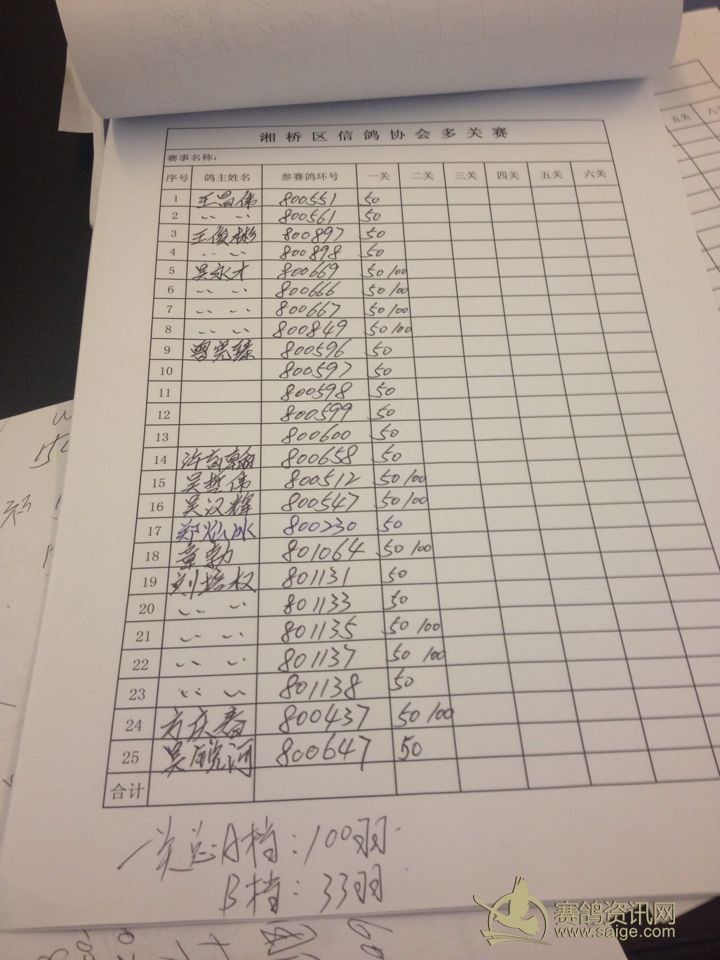 湘桥区信鸽协会多关赛
赛事名称:
序号 鸽主姓名 参赛鸽环号 一关 二关 三关 四关 五关 六关
1 王昌伟 800551 50
2 〃 〃 800561 50
3 王俊彬 800897 50
4 〃 〃 800898 50
5 吴永才 800669 50 100
6 〃 〃 800666 50 100
7 〃 〃 800667 50 100
8 〃 〃 800849 50 100
9 800596 50
10 800597 50
11 800598 50
12 800599 50
13 800600 50
14 800658 50
15 吴哲伟 800512 50 100
16 吴汉辉 800547 50 100
17 800230 50
18 章勃 801064 50 100
19 刘培权 801131 50
20 〃 〃 801133 50
21 〃 〃 801135 50 100
22 〃 〃 801137 50 100
23 〃 〃 801138 50
24 方庆春 800437 50 100
25 800647 50
合计
一关总A档:100羽
B档:33羽
五关
赛鸽资讯网
www.saige.com